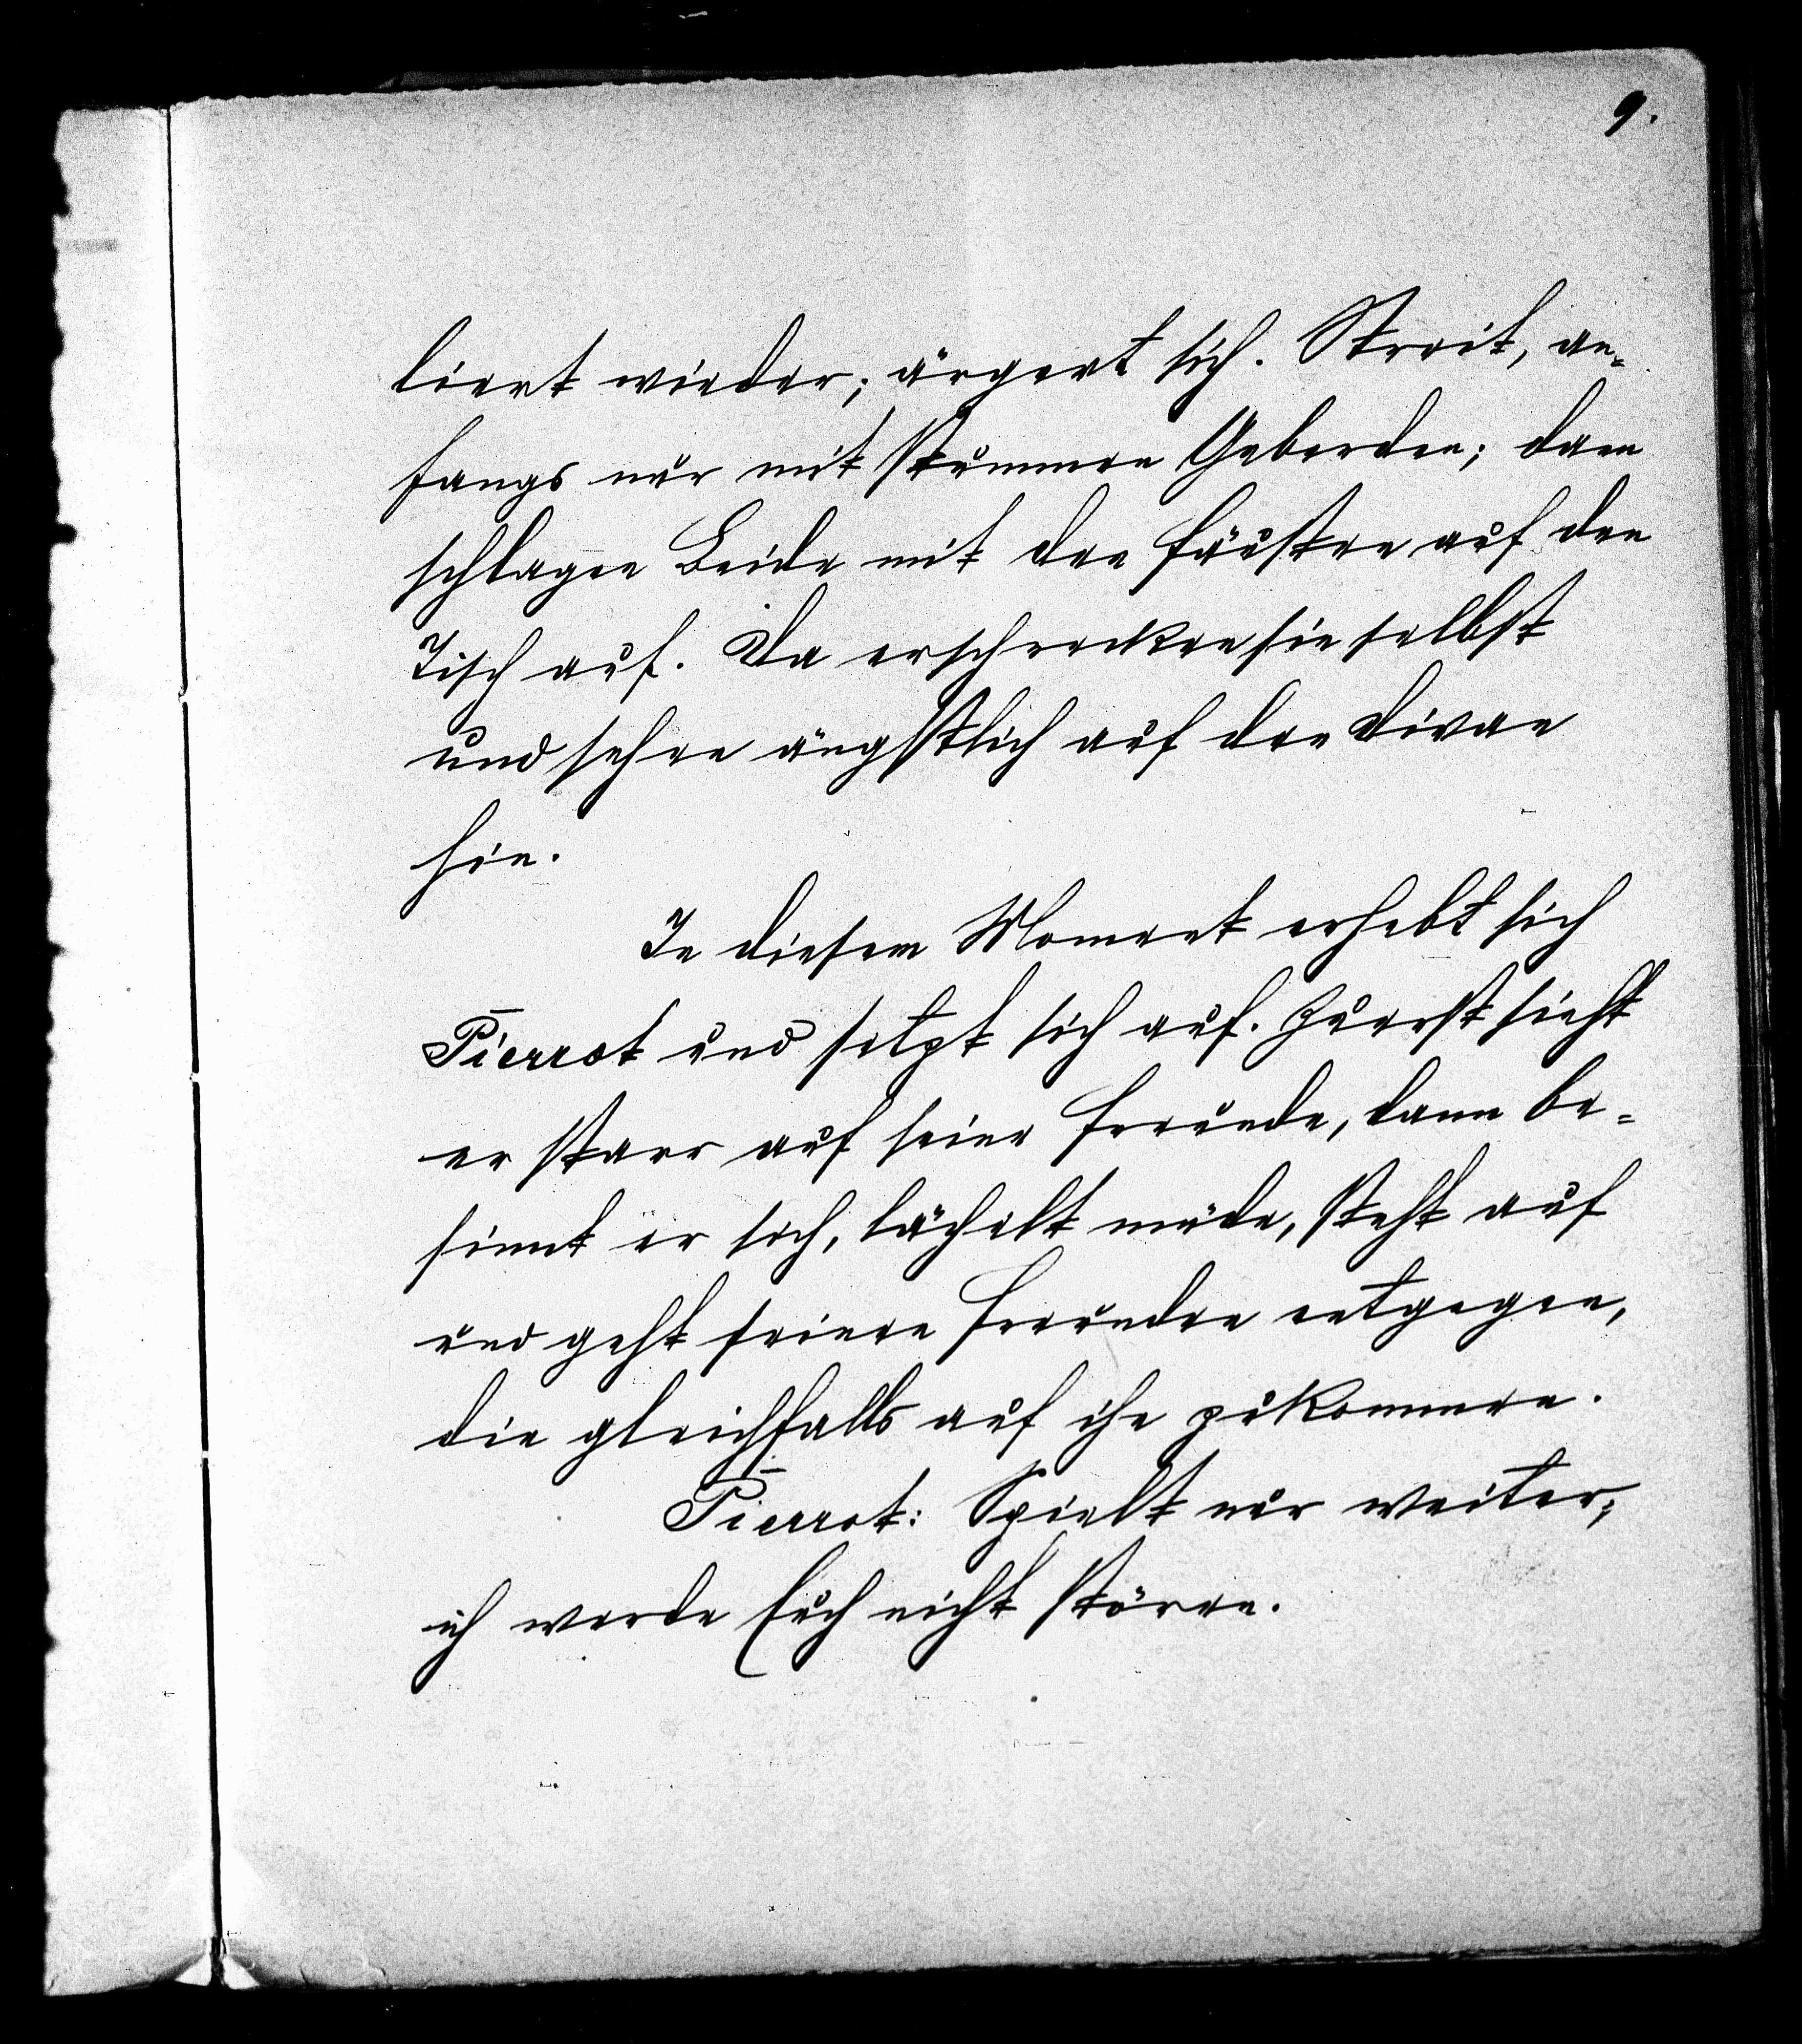 9.
liert wieder; ärgert sich. Streit, an-
fangs nur mit stummen Geberden; dann
schlagen Beide mit den Fäusten auf den
Tisch auf. Da erschrecken sie selbst
und sehen ängstlich auf den Divan
hin.
In diesem Moment erhebt sich
Pierrot und setzt sich auf. Zuerst sieht
er starr auf seine Freunde, dann be-
sinnt er sich, lächelt müde, steht auf
und geht seinen Freunden entgegen,
die gleichfalls auf ihn zukommen.
Pierrot: Spielt nur weiter,
ich werde Euch nicht stören.